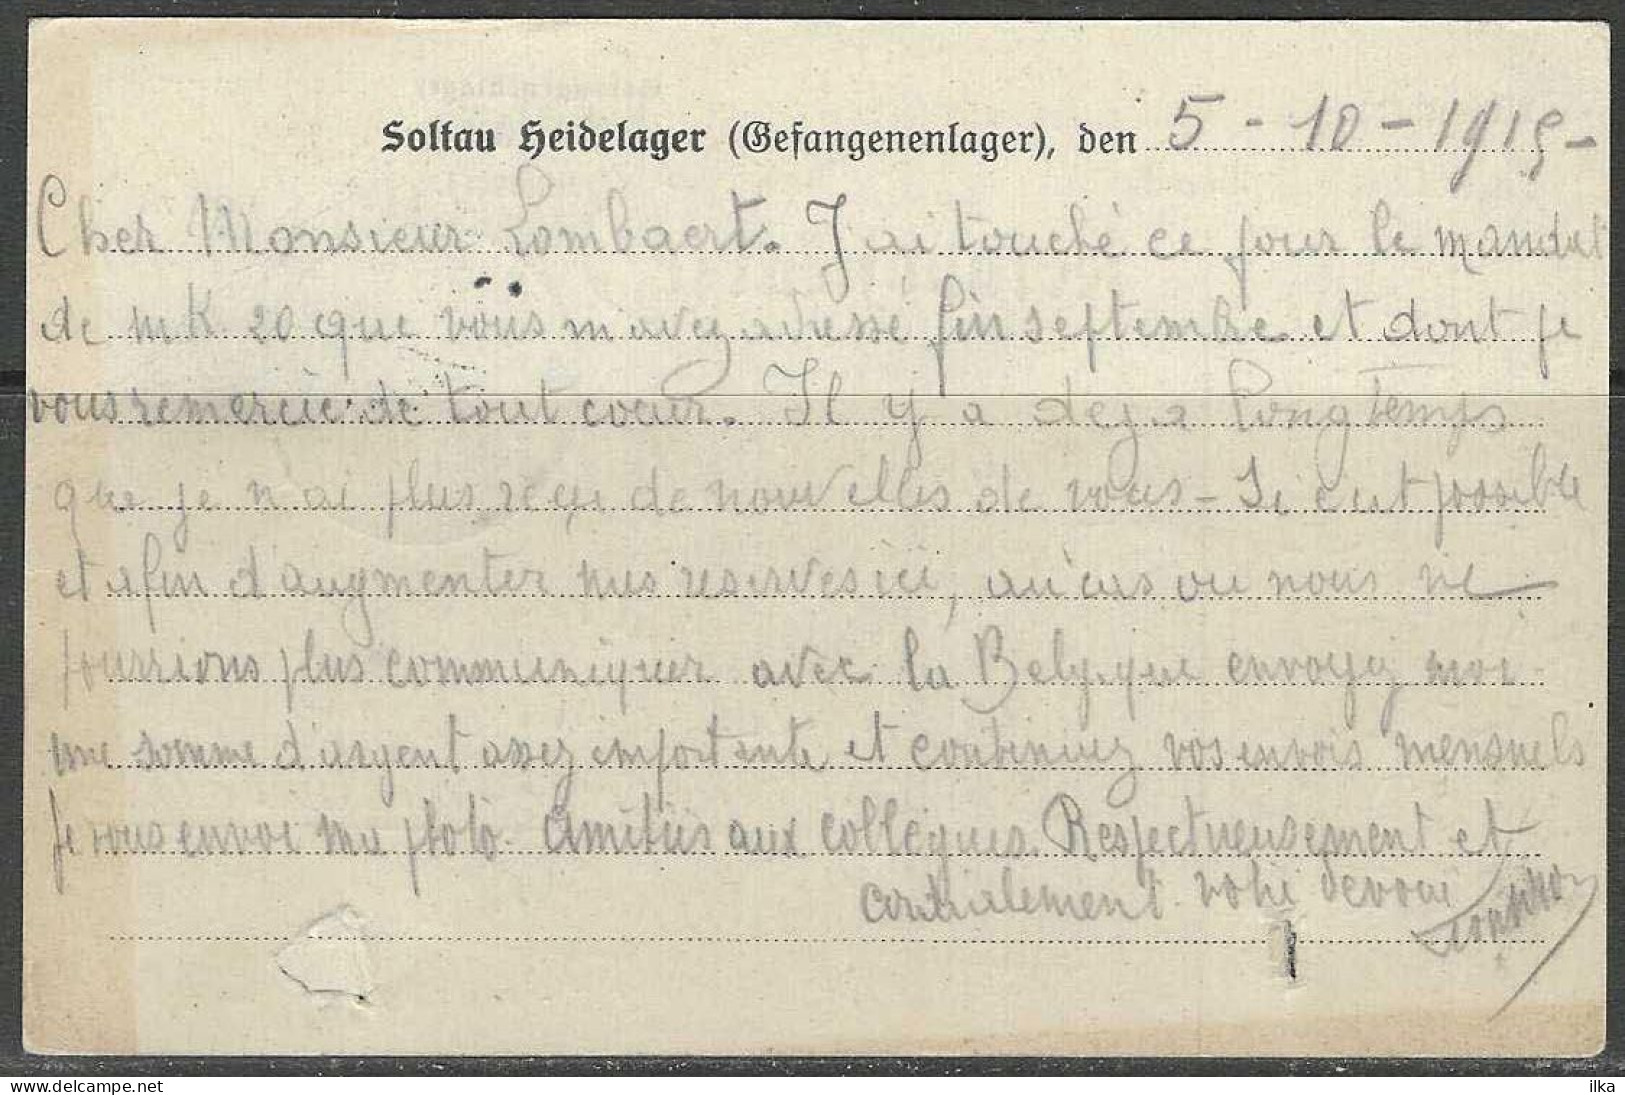 Soltau Heidelager (Gefangenenlager), den 5 - 10 - 1915 -
Cher Monsieur Lombaert. J'ai touché ce jour le mandat
de mk 20 que vous m'avez adressé fin septembre et dont je
vous remercie de tout coeur. Il y a deja longtemps
que je n'ai plus reçu de nouvelles de vous - Si c'est possible
et afin d'augmenter mes reserves ici, au cas ou nous ne
pourrions plus communiquer avec la Belgique envoyez moi
une somme d'argent assez importante et continuez vos envois mensuels
Je vous envoi ma photo. Amitiés aux collègues. Respectueusement et
cordialement votre devoué
www.delcampe.net
ilka